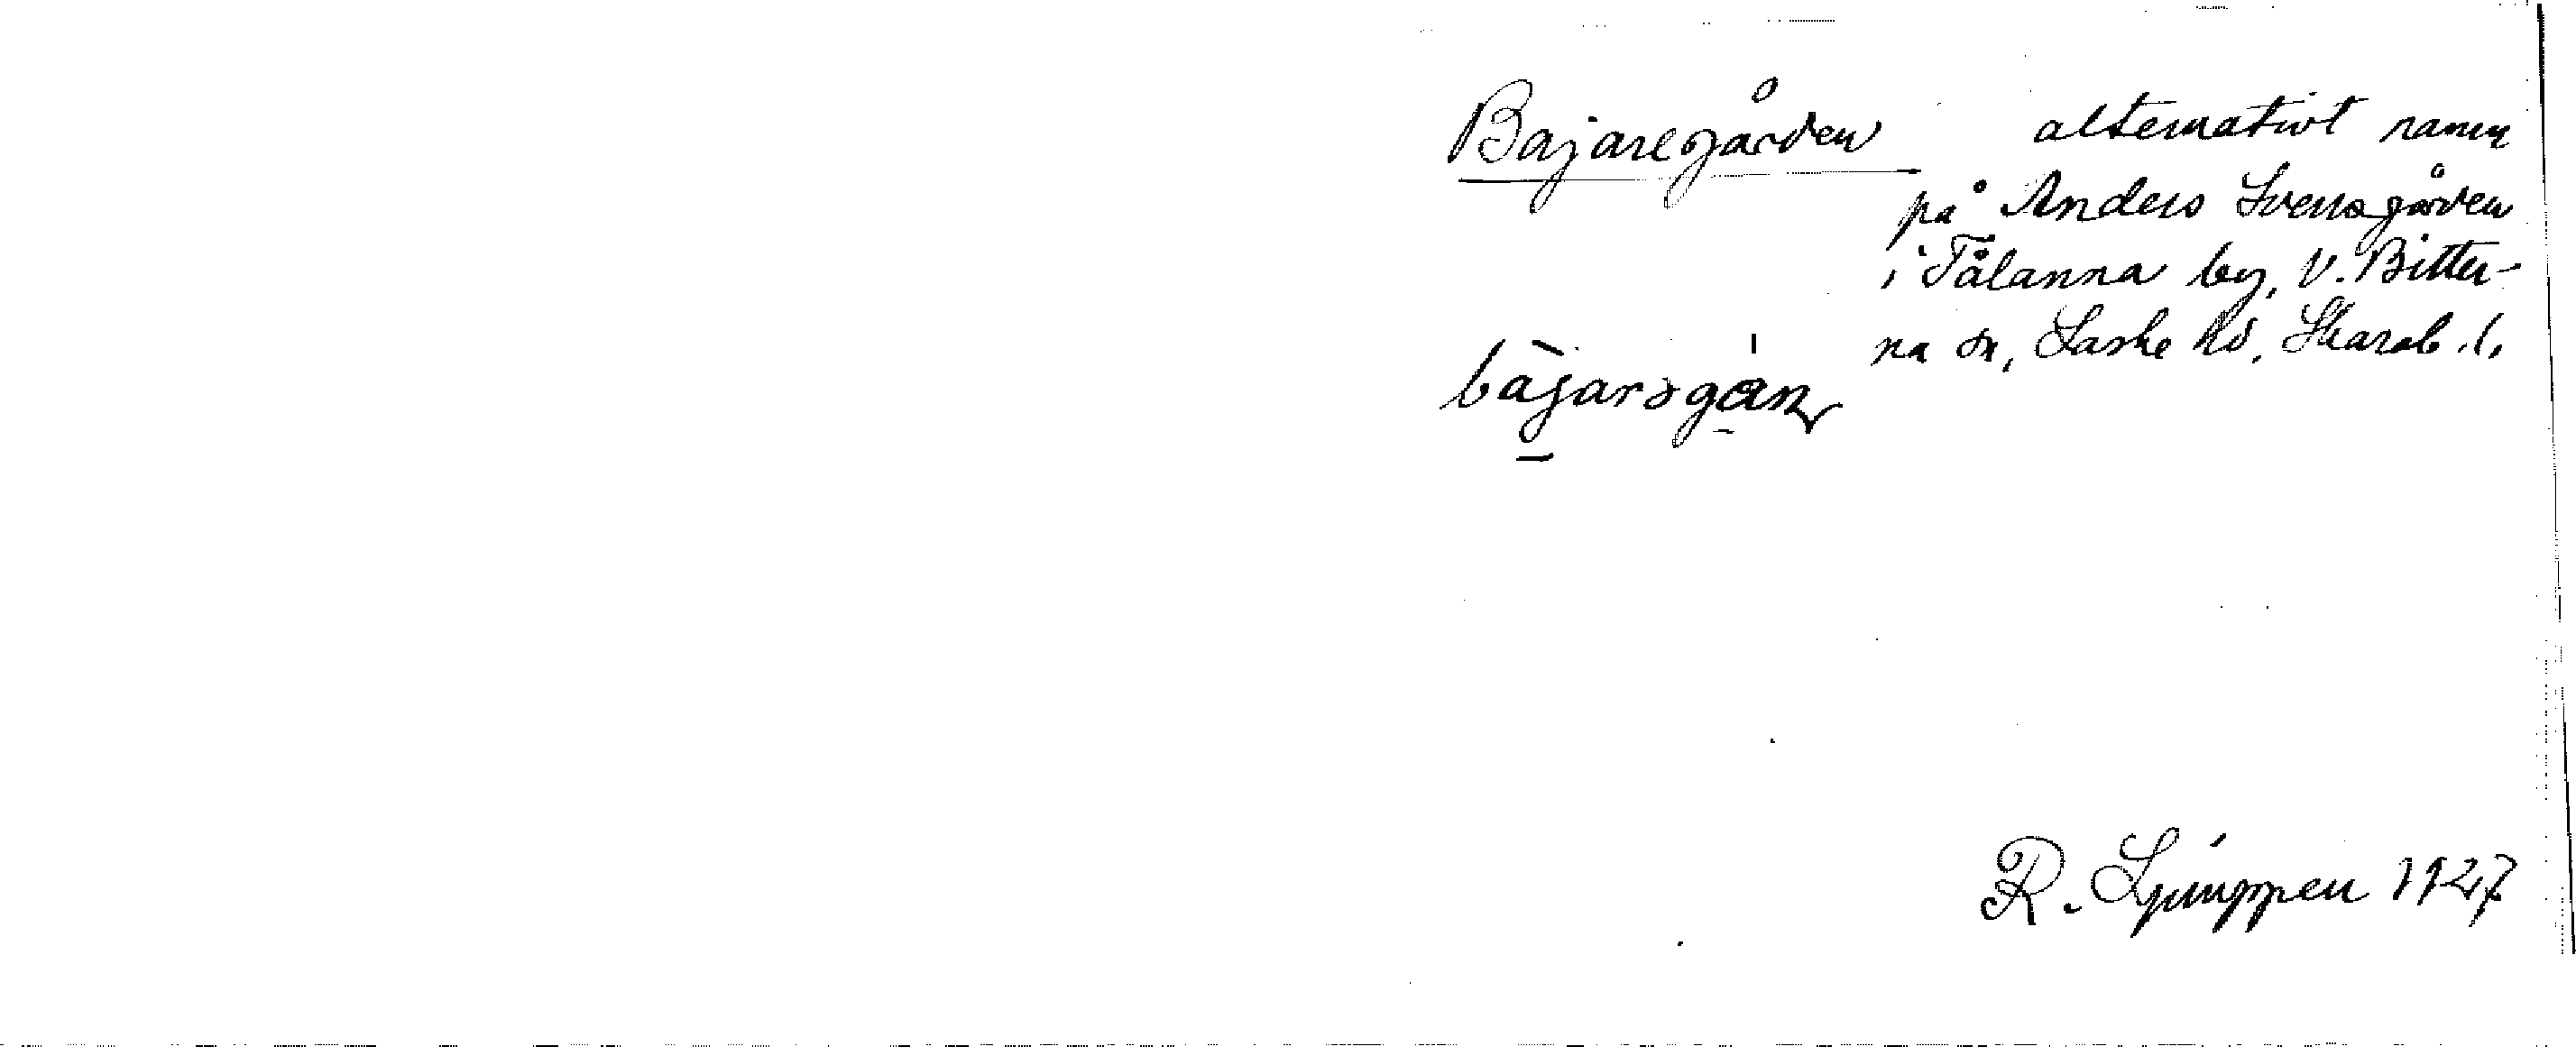 Bajaregården alternativt namn
på Anders Svensgården
i Tålanna by, V. Bitter-
na sn, Laske hd, Skarab. l.
bàjarəgán
R. Ljunggren 1927